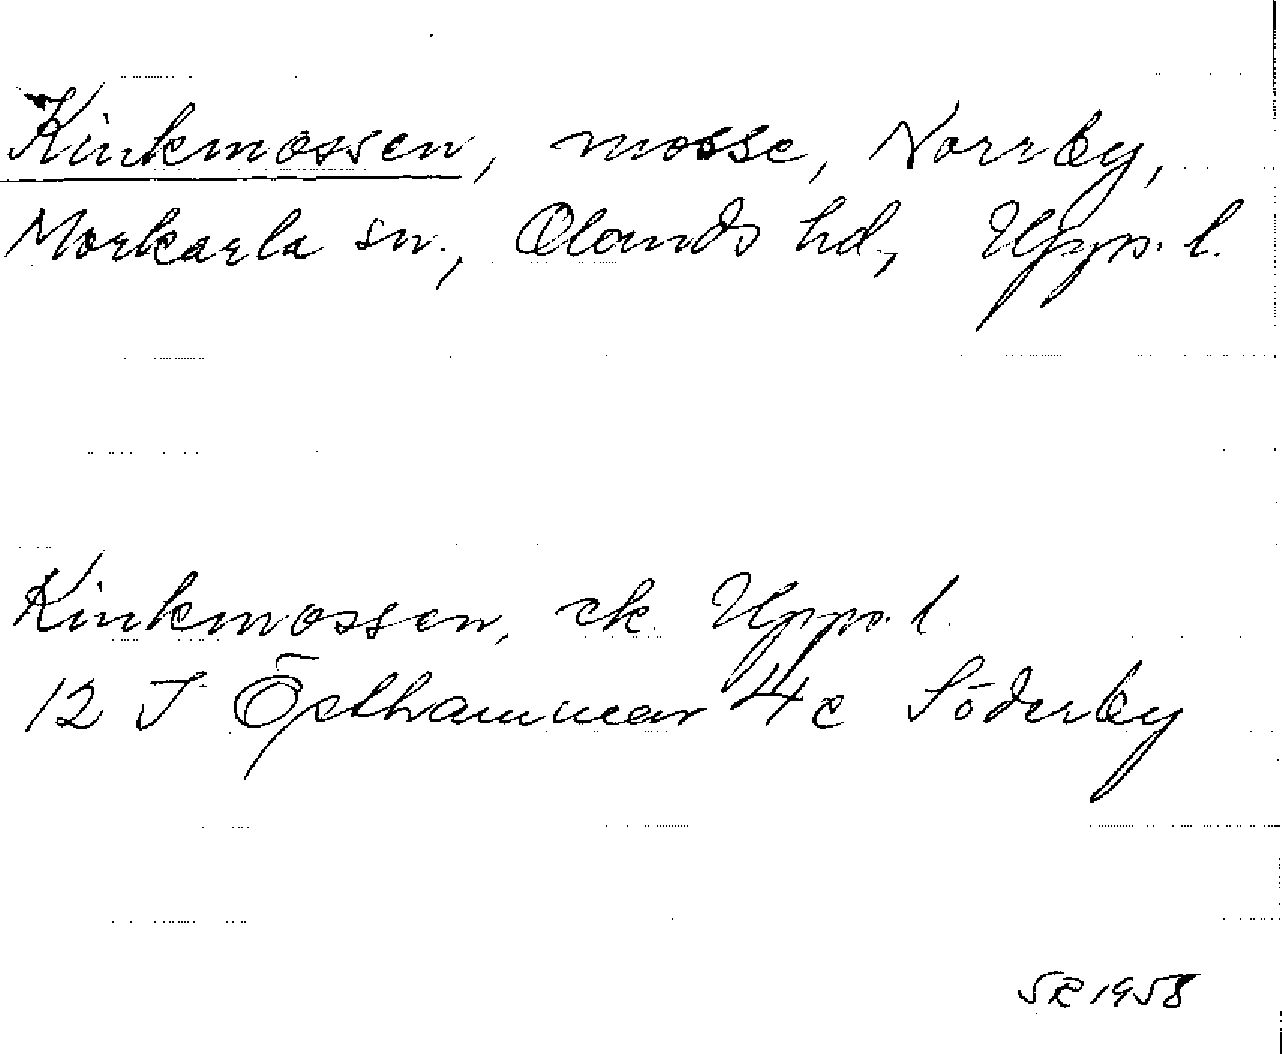 Kinkmossen, mosse, Norrby,
Morkarla sn., Olands hd, Upps. l.
Kinkmossen, ek. Upps. l.
12 I Östhammar 4 c Söderby
SR 1958